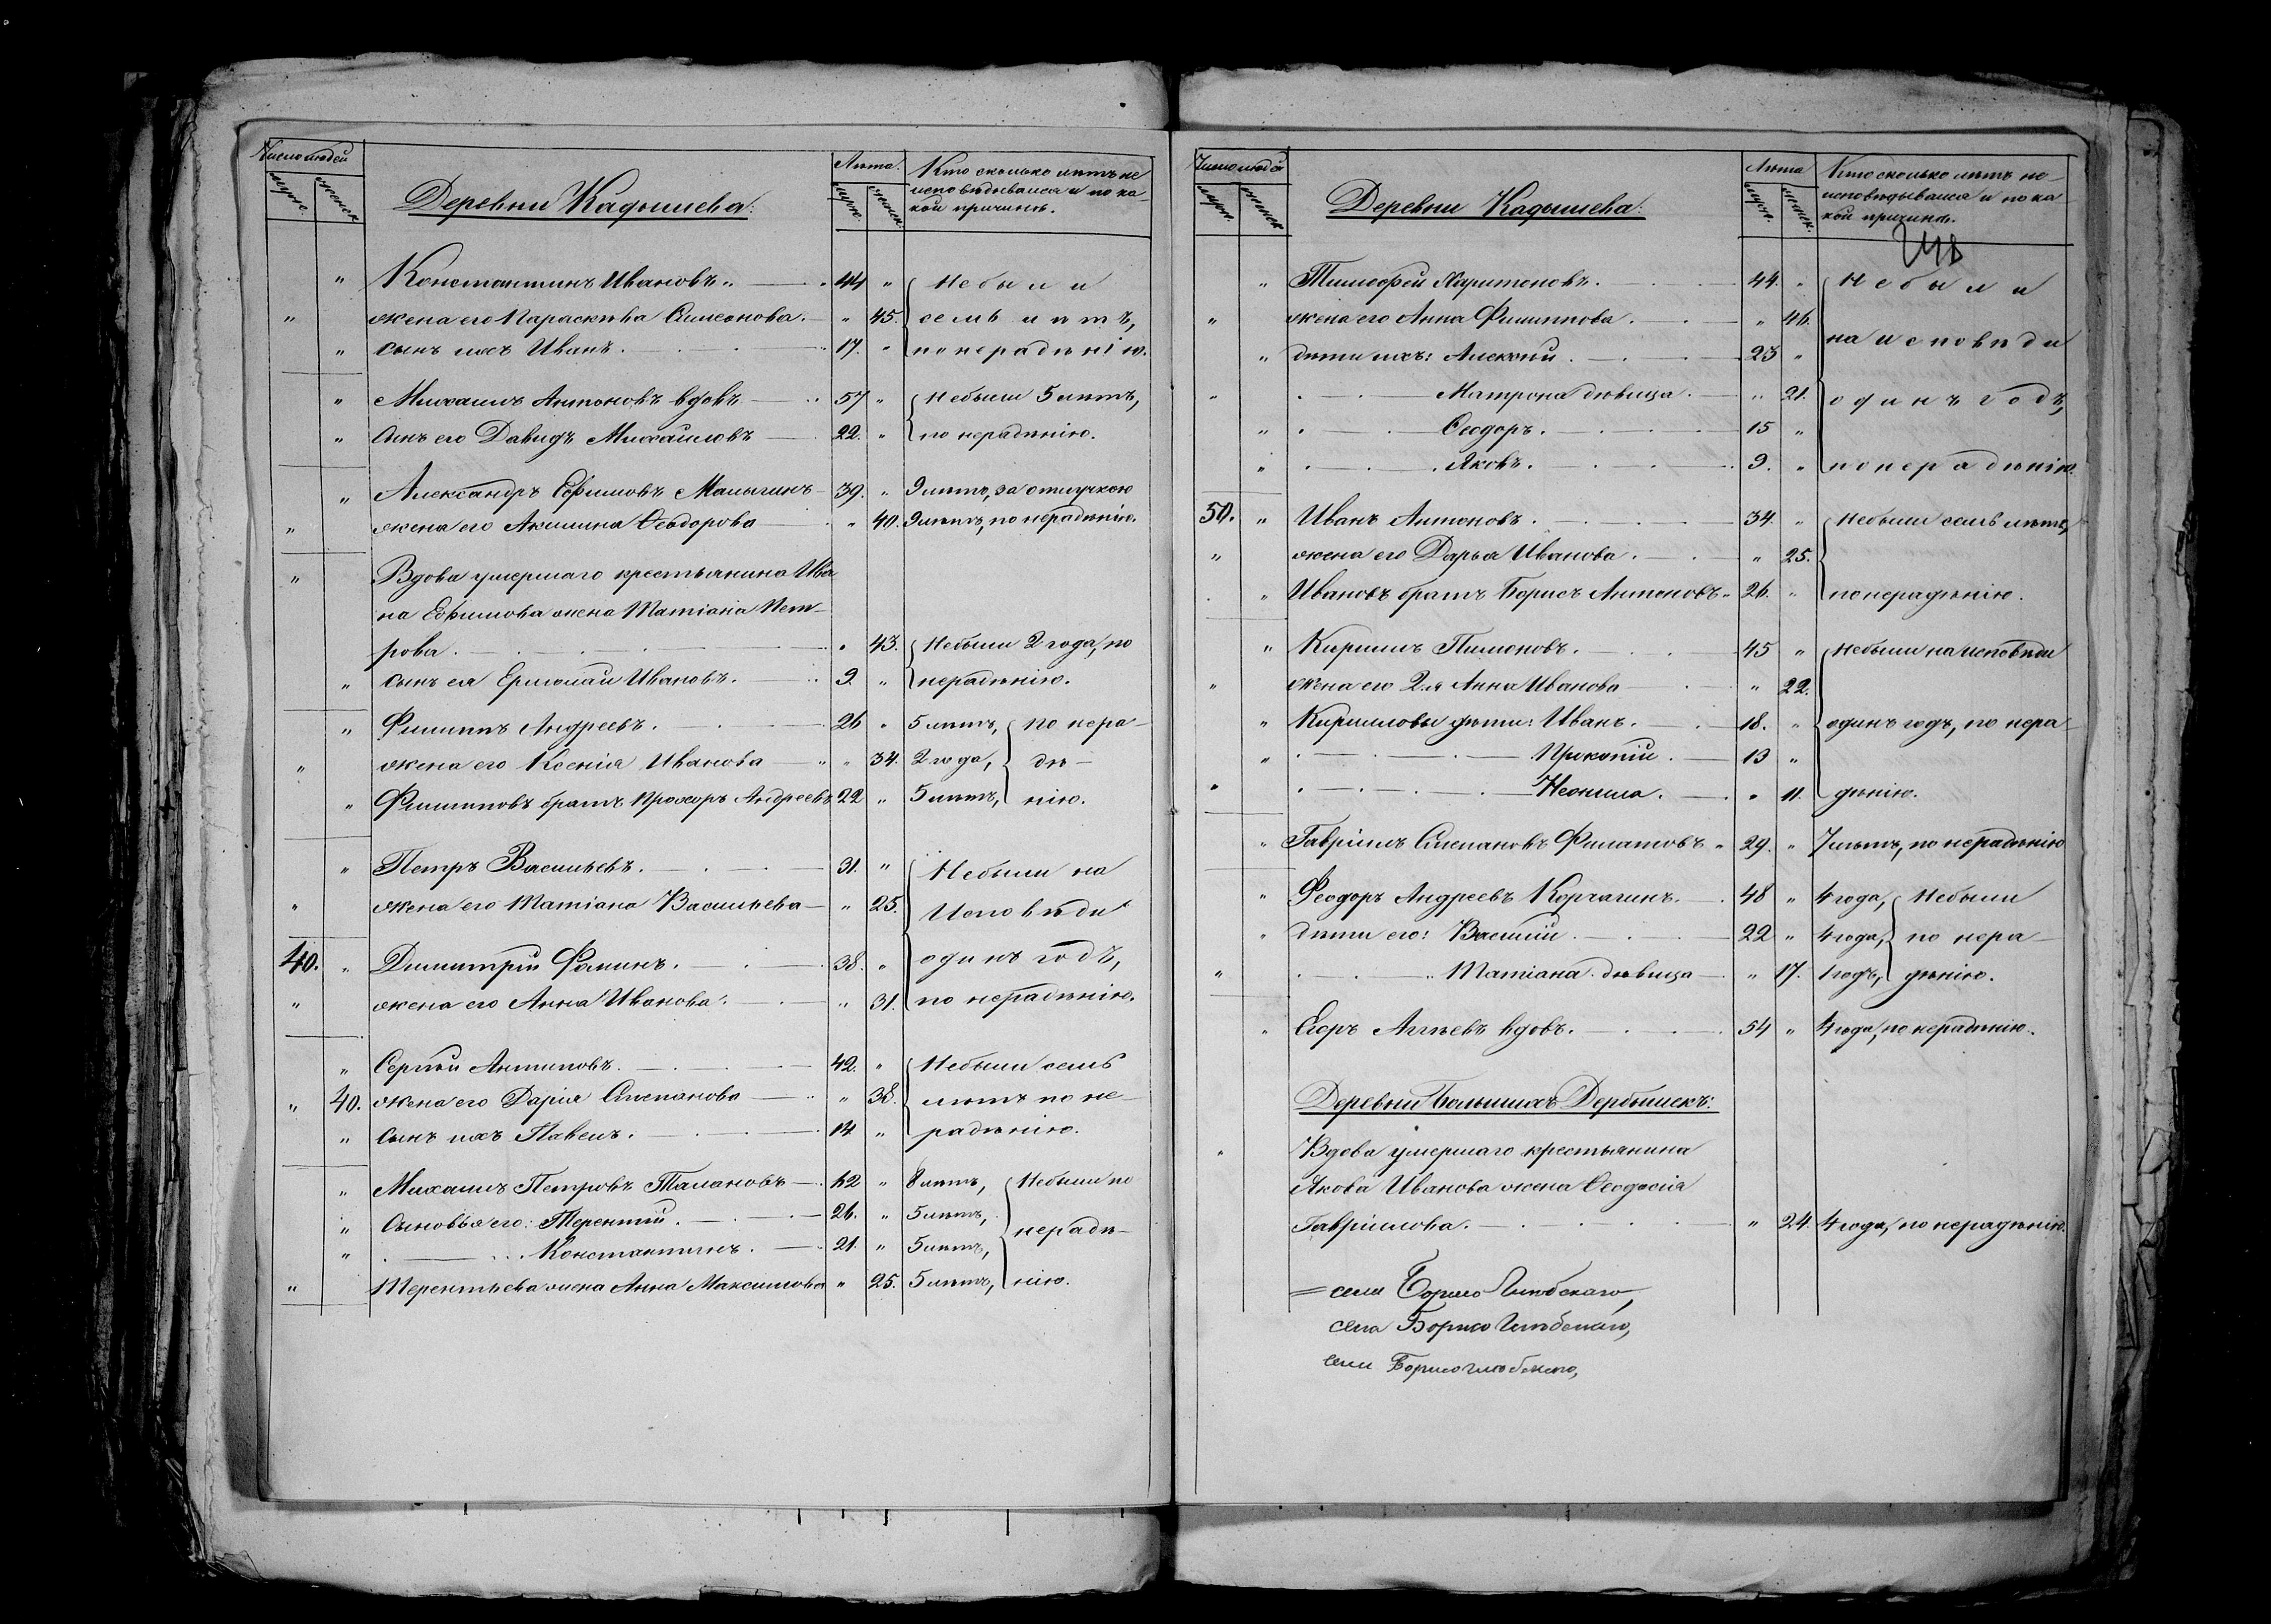 Число людей
мужс.
женск.
Деревни Кадышева:
Лѣта.
мужс.
женск.
Кто сколько лѣтъ не
исповѣдывался и по ка-
кой причинѣ.
" Константинъ Ивановъ. 44 " Небыли
" жена его Параскѣва Симеонова. " 45. семь лѣтъ,
" сынъ ихъ Иванъ. 17. " по нерадѣнію.
" Михаилъ Антоновъ вдовъ 57 " Небыли 5 лѣтъ,
" Сынъ его Давидъ Михайловъ 22. " по нерадѣнію.
" Александръ Ефимовъ Малыгинъ 39. " 9 лѣтъ, за отлучкою
" жена его Акилина Ѳеодорова " 40. 9 лѣтъ, по нерадѣнію.
" Вдова умершаго крестьянина Ива
на Ефимова жена Татіана Пет-
рова. " 43. Небыли 2 года, по
" сынъ ея Ермолай Ивановъ. 9. " нерадѣнію.
" Филиппъ Андреевъ. 26 " 5 лѣтъ, по нера-
" жена его Ксенія Иванова " 34. 2 года, дѣ-
" Филипповъ братъ Прохоръ Андреевъ 22 " 5 лѣтъ, нію.
" Петръ Васильевъ. 31. " Небыли на
" жена его Татіана Васильева " 25. Исповѣди
40. " Димитрій Фоминъ. 38. " одинъ годъ,
" жена его Анна Иванова. " 31. по нерадѣнію.
" Сергѣй Антиповъ. 42. " Небыли семь
" 40. жена его Дарія Степанова " 38. лѣтъ по не-
" Сынъ ихъ Павелъ. 14 " радѣнію.
" Михаилъ Петровъ Талановъ 62 " 8 лѣтъ, Небыли по
" Сыновья его: Терентій. 26. " 5 лѣтъ, нерадѣ-
" Константинъ. 21. " 5 лѣтъ,
" Терентьева жена Анна Максимова " 25. 5 лѣтъ, нію.
Число людей
мужс.
женск.
Деревни Кадышева:
Лѣта
мужс.
женск.
Кто сколько лѣтъ не-
исповѣдывался и по ка
кой причинѣ.
" Тимофей Харитоновъ. 44. " Небыли
" жена его Анна Филиппова. " 46. на исповѣди
" дѣти ихъ: Алексѣй. 23 "
" Матрона дѣвица. " 21. одинъ годъ,
" Ѳеодоръ. 15 "
" Яковъ. 9. " по нерадѣнію.
50. " Иванъ Антоновъ. 34. " Небыли семь лѣтъ,
" жена его Дарья Иванова. " 25.
" Ивановъ братъ Борисъ Антоновъ. 26. " по нерадѣнію.
" Кириллъ Пименовъ. 45 " Небыли на исповѣди
" Жена его 2.я Анна Иванова " 22.
" Кирилловы дѣти: Иванъ. 18. " одинъ годъ, по нера-
" Прокопій. 13 "
" Неонила. " 11. дѣнію.
" Гавріилъ Степановъ Филатовъ 29. " 7 лѣтъ, по нерадѣнію
" Феодоръ Андреевъ Корчагинъ. 48 " 4 года, Небыли
" дѣти его: Василій. 22 " 4 года, по нера-
" Татіана дѣвица " 17. 1 годъ, дѣнію.
" Егоръ Агѣевъ вдовъ. 54 " 4 года, по нерадѣнію.
Деревни Большихъ Дербышекъ:
" Вдова умершаго крестьянина
Якова Иванова жена Ѳеодосія
Гавріилова. " 24. 4 года, по нерадѣнію.
= села Борисо Глѣбскаго,
села Борисо Глѣбскаго,
села Борисоглѣбскаго,